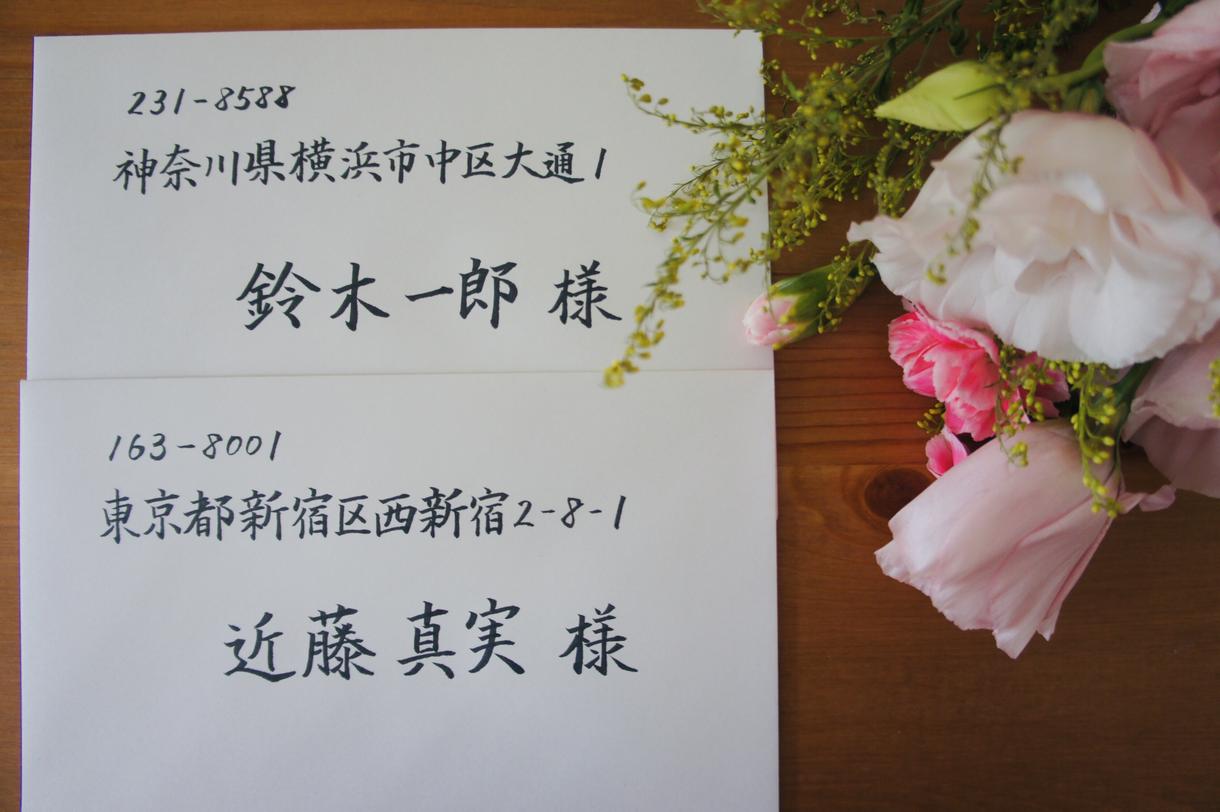 231-8588
神奈川県横浜市中区大通1
鈴木一郎 様
163-8001
東京都新宿区西新宿2-8-1
近藤 真実 様